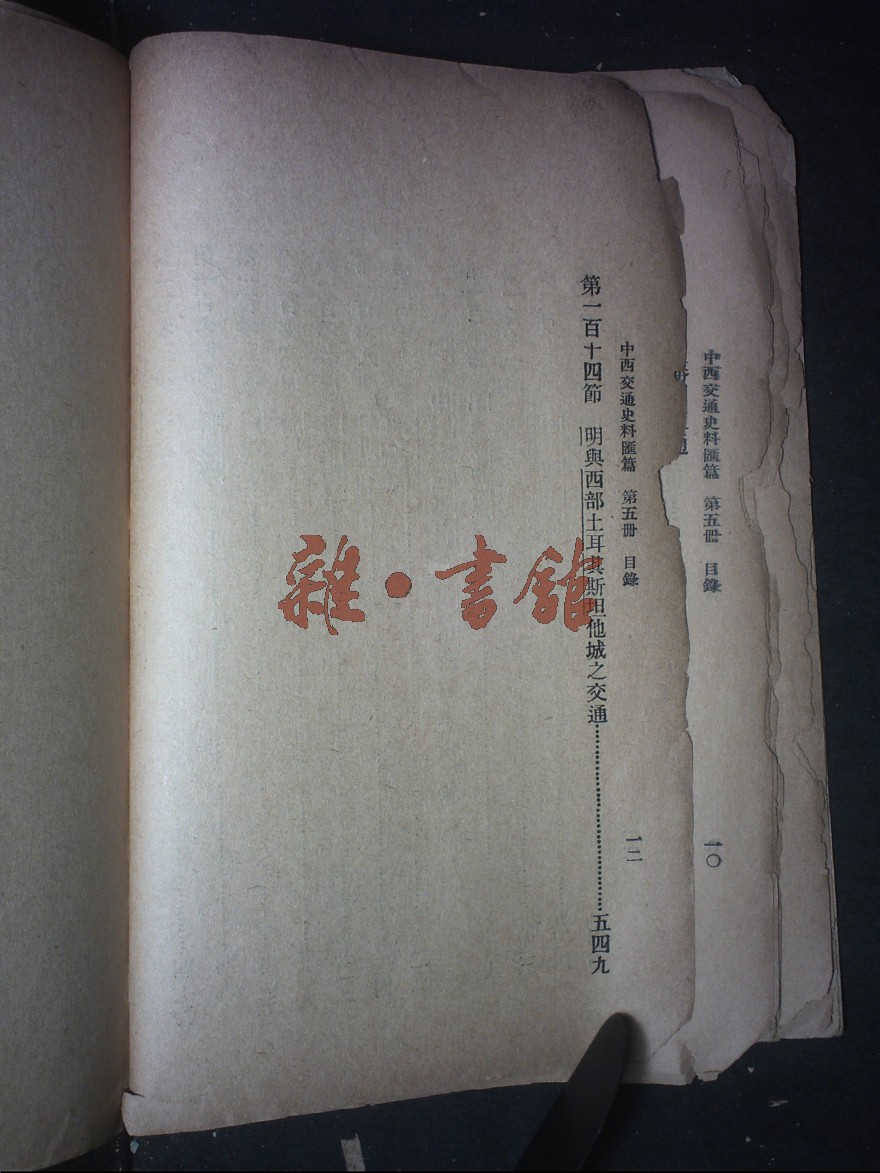 中西交通史料匯篇 第五冊 目錄 一〇
中西交通史料匯篇 第五冊 目錄 一二
第一百十四節 明與西部土耳其斯坦他城之交通……五四九
雜·書館